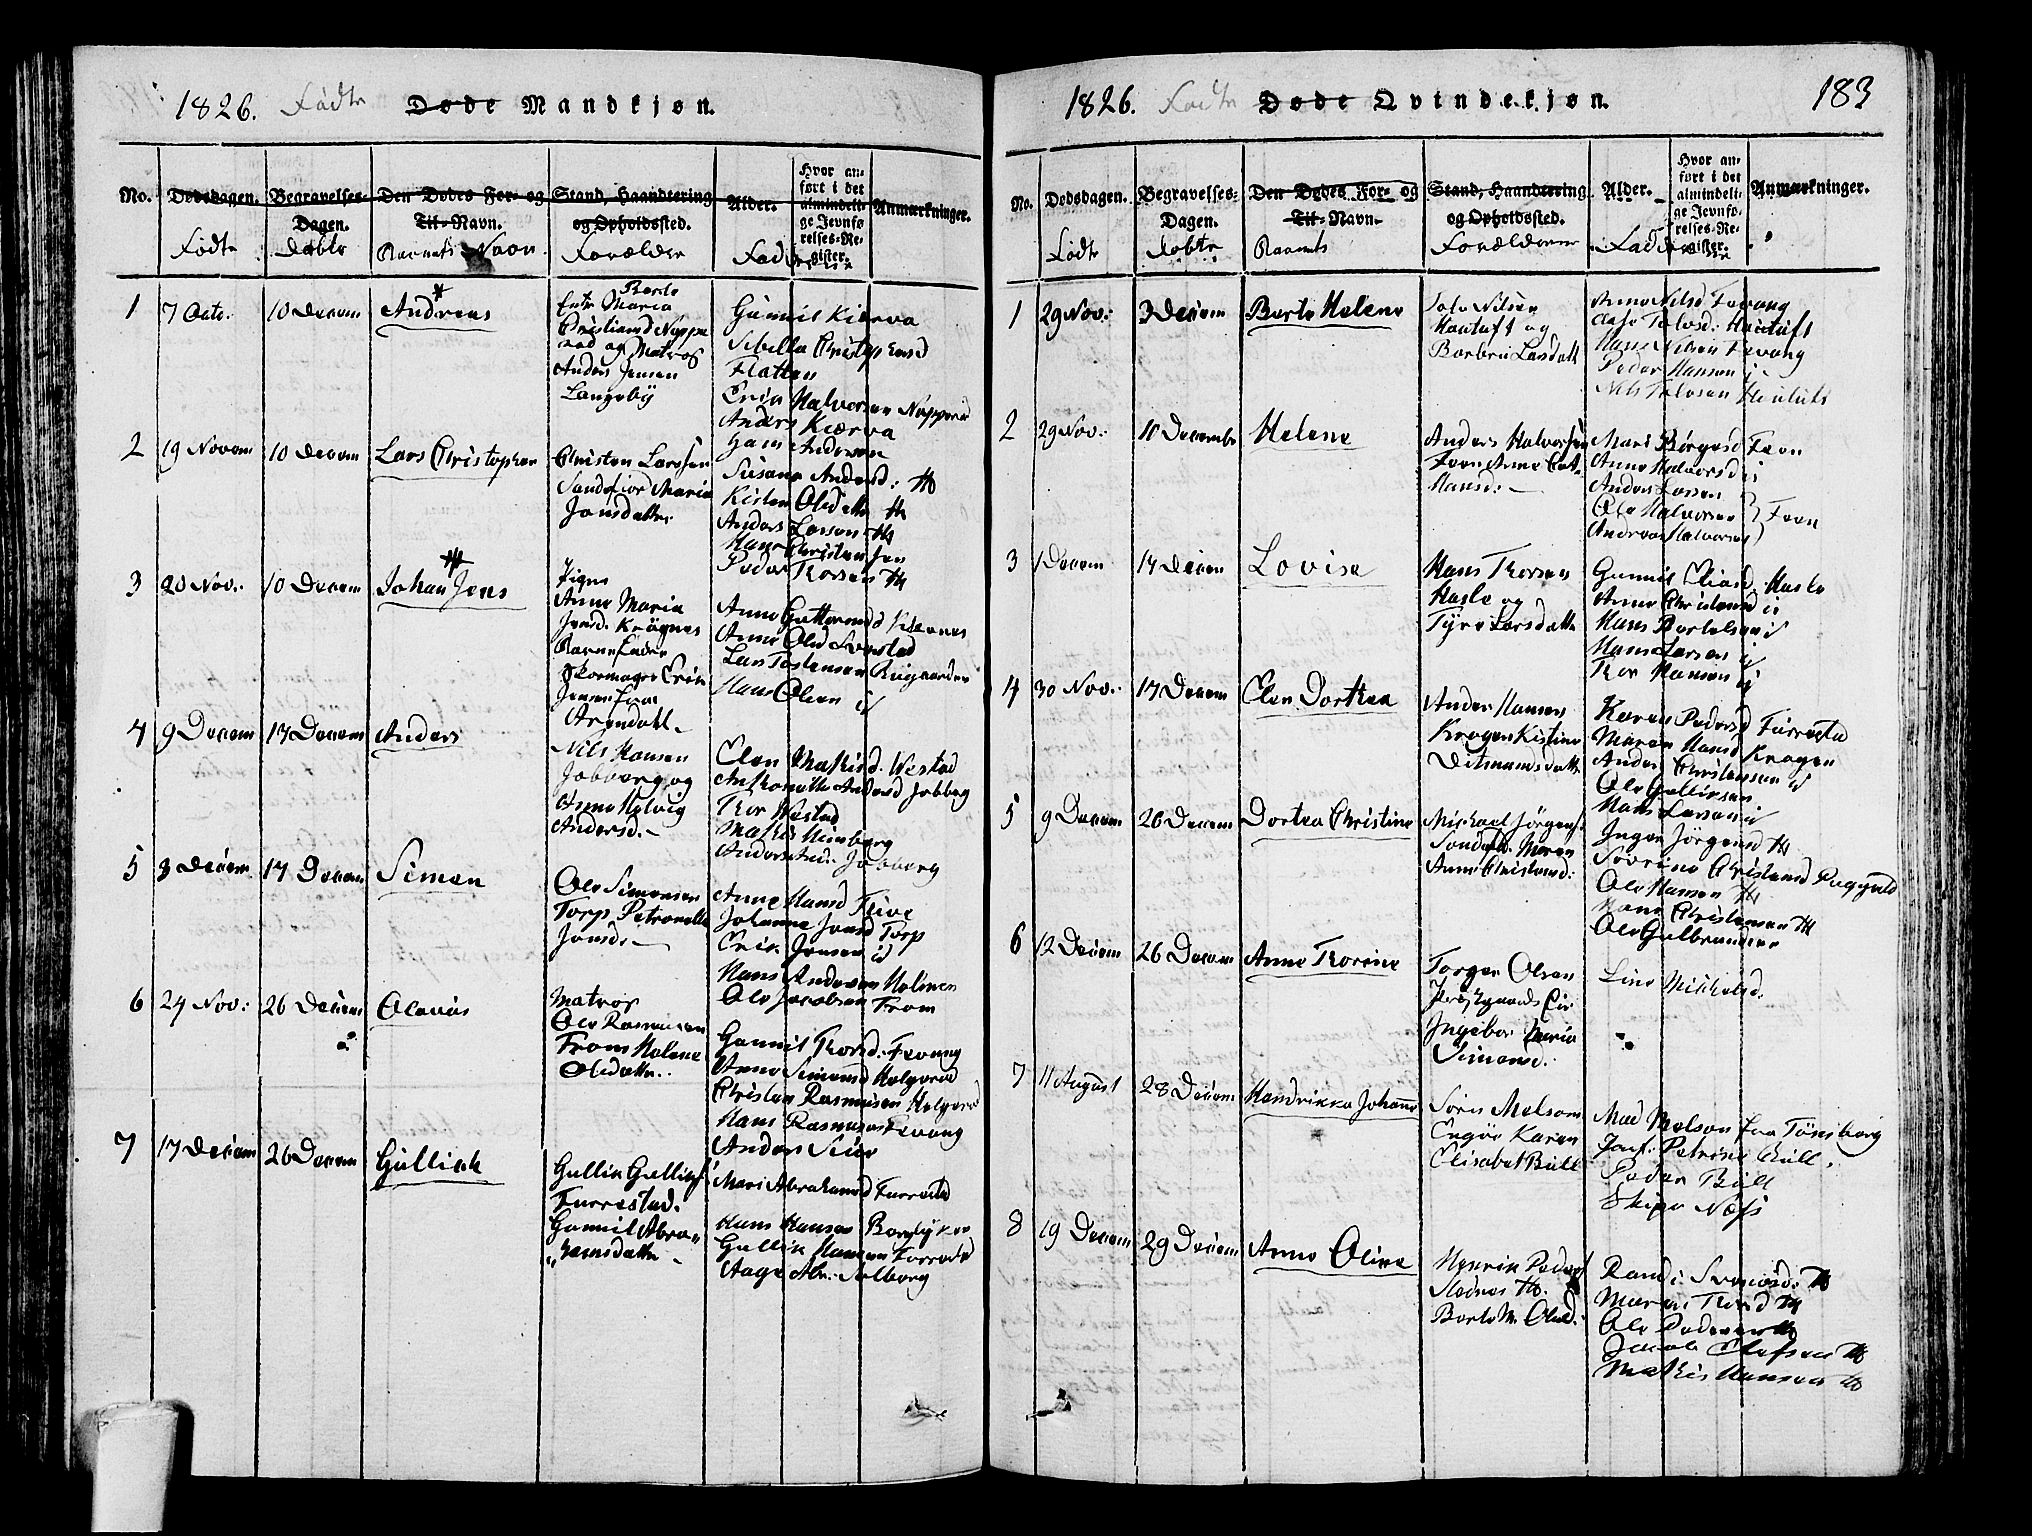 1826. Födte Døde Mandkjøn.
No. Dødsdagen. Begravelses-Dagen. Den Dødes For- og Til-Navn. Stand, Haandtering og Opholdssted. Alder. Hvor anført i det almindelige Jevnførelses-Register. Anmærkninger.
Födte Döbte Barnets Navn Forældre Faddere
1 7 Octr. 10 Decem Andreas
Berte
Maria
Christiansd Nøppe
rød og Matros
Anders Jensen
Langeby
Gunnil Kierva
Sibilla Christophersd
Flatten
Erik Halvorsen Nøpperød
Anders Kierva
Hans Andersen
2 19 Novem 10 Decem Lars Christopher
Christen Larssen
Sandefior Maria
Jonsdatter
Susane Andersd: th
Kirsten Olsdatter th
Anders Larsen th
Hans Christensen
Peder Thorsen th
3 20 Nov: 10 Decem Johan Jens
Pigen
Anne Maria
Jensd. Krögnes
Barnefader
Skoemager Erik
Jensen fra
Arendahl
Anne Guttormsd Kilenes
Anne Olsd
Lars Tostensen Ruegaarden
Hans Olsen id
4 9 Decem 17 Decem Anders
Nils Hansen
Jobberg og
Anne Helvig
Andersd.
Elen Mathisd. Westad
Anthonette Andersd Jobberg
Thor Westad
Mathis
Anders Jobberg
5 3 Decem 17 Decem Simon
Ole Simonsen
Torp Petronelle
Jonsd:
Anne Hansd
Johanne Jonsd Torp
Erik Jensen id
Hans Andersen Holmen
Ole Jacobsen From
6 24 Nov: 26 Decem Olavus
Matros
Ole Rasmusen
From Helene
Olsdatter.
Gunnil Thorsd. Fevang
Anne Simonsd Helgerød
Christen Rasmusen Helgerød
Hans Rasmusen Fevang
Anders
7 17 Decem 26 Decem Gullich
Gullik Gulliks
Furrestad.
Gunnil Abra
hamsdatter
Mari Abrahamsd Furrestad
Hans Hansen
Gullik Hansen Forrestad
Aage Abr:
1826. Födte Døde Qvindekjøn. 183
No. Dødsdagen. Begravelses-Dagen. Den Dødes For- og Til-Navn. Stand, Haandtering og Opholdssted. Alder. Hvor anført i det almindelige Jevnførelses-Register. Anmærkninger.
Födte Döbte Barnets Forælderne Faddere
1 29 Nov: 3 Decem Berte Helene
Tolv Nilsen
Hautuft og
Barbru Larsdatt
Anne Nilsd Fevang
Tolvsd: Hautuft
Hans Nilsen Fevang
Peder Hansen
Nils Tolvsen Hautuft
2 29 Nov: 10 Decembr Helene
Anders Halvorsen
Feen Anne Cat.
Hansd:
Mari Börgesd Feen
Anne Halvorsd id
Anders Larsen
Ole Halvorsen
Andreas Halvorsen Feen
3 1 Decem 17 Decem Lovise
Hans Thorsen
Hasle og
Tyre Larsdatter
Gunnil Eliasd: Hasle
Anne Christensd id
Hans Bertelsen id
Hans Larsen id
Thor Hansen id
4 30 Nov: 17 Decem Elen Dorthea
Anders Hansen
Kragen Kistine
Ditmansdatt
Karen Pedersd Furrestad
Maren Hansd Kragen
Anders Christensen id
Ole Gulliksen
Hans Larsen id
5 9 Decem 26 Decem Dortea Christine
Michael Jörgens
Sandef. Maren
Anne Christensd:
Inger Jörgensd th
Severine Christensd
Ole Hansen th
Hans Christensen th
Ole Gulbrandsen
6 12 Decem 26 Decem Anne Thorine
Torger Olsen
Ingebor Maria
Simonsd:
Line Mikkelsd.
7 11 August 28 Decem Hendrikke Johanne
Sören Melsom
Engöe Karen
Elisabet Bull
Mad Melson fra Tönsberg
Jomf: Petrine Bull
Peder Bull
Skiper Næss
8 19 Decem 29 Decem Anne Oline
Henrik Peders
th.
Berte M. Olsd.
Randi th
Maren Thorsd th
Ole Pedersen th
Jacob Olafsen th
Mathis Hansen th